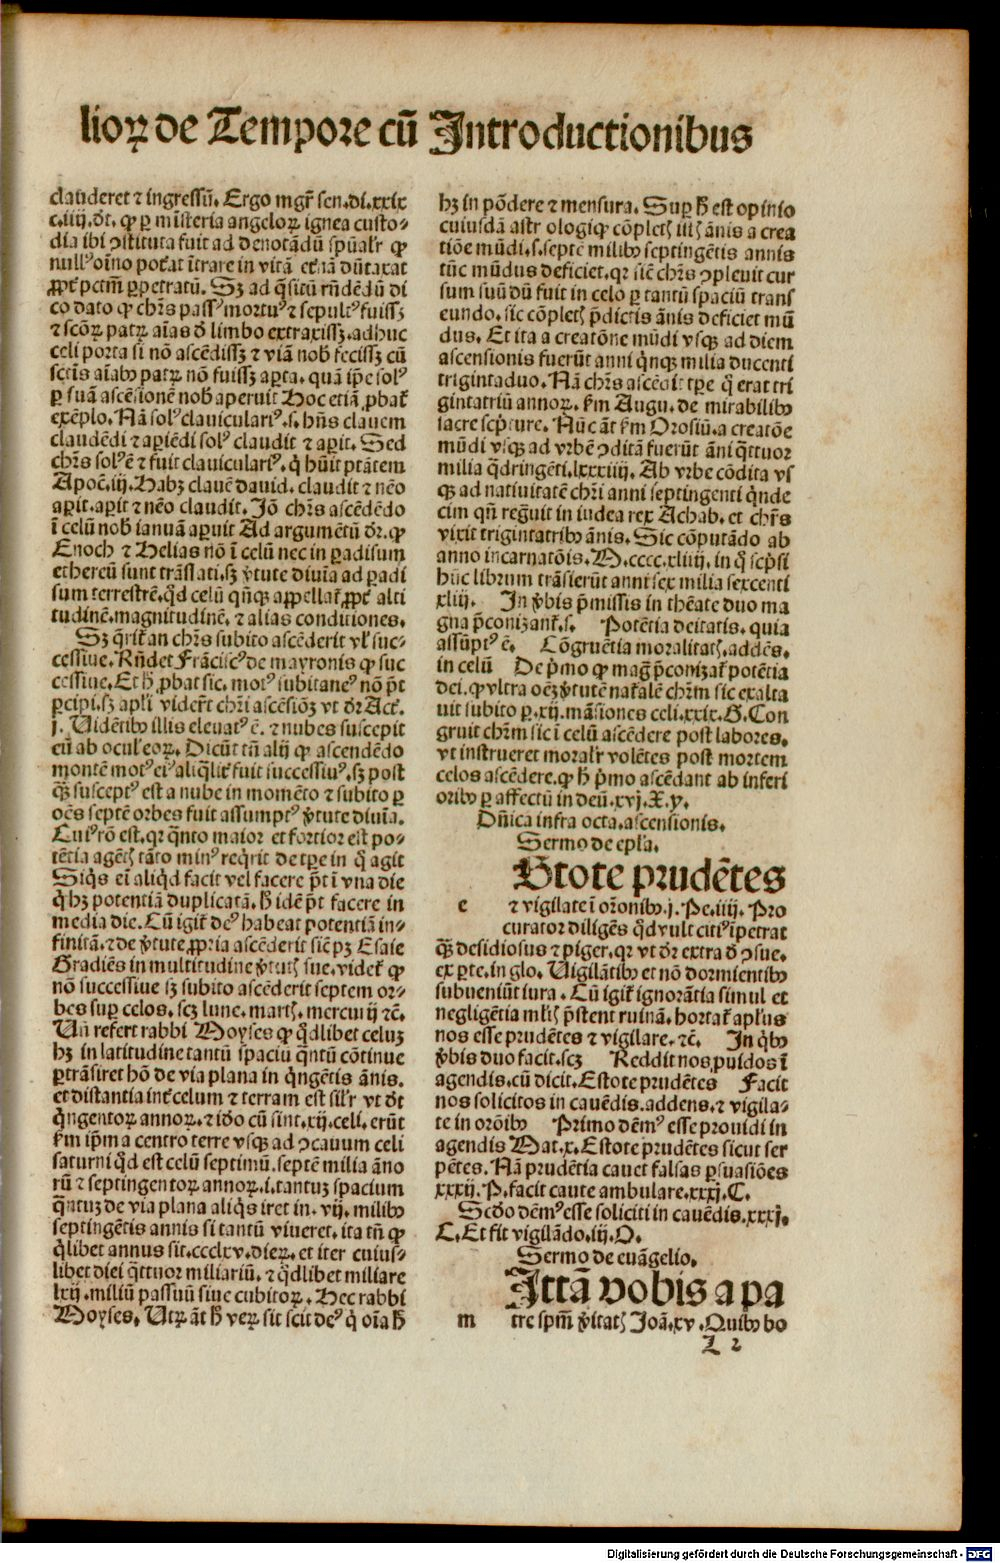 lioꝝ de Tempore cū Introductionibus
clauderet ⁊ ingressū. Ergo mgr̄ sen.di.xxix
c.iiij.dt. ꝙ ꝑ mīsteria angeloꝝ ignea custo⸗
dia ibi ꝯstituta fuit ad denotādū spūalr̄ ꝙ
nullꝰ oīno potat ītrare in vitā etnā dūtaxat
ꝓpt pctm̄ ꝑpetratū. Sꝫ ad q̄sitū rn̄dēdū di
co dato ꝙ chr̄s passꝰ mortuꝰ ⁊ sepultꝰ fuissꝫ
⁊ scōꝝ patꝝ aīas d̄ limbo extraxissꝫ.adhuc
celi porta si nō ascēdissꝫ ⁊ viā nob̄ fecissꝫ cū
sctīs aīabꝰ patꝝ nō fuissꝫ aꝑta. quā ip̄e solꝰ
ꝑ suā ascēsionē nob̄ aperuit Hoc etiā ꝓbat̄
exēplo. Nā solꝰ clauiculariꝰ.s. hn̄s clauem
claudēdi ⁊ aꝑiēdi solꝰ claudit ⁊ aꝑit. Sed
chr̄s solꝰ ē ⁊ fuit clauiculariꝰ. q̇ hūit ptātem
Apoc̄.iij. Habꝫ clauē dauid. claudit ⁊ nēo
aꝑit.aꝑit ⁊ nēo claudit. Jō chr̄s ascēdēdo
ī celū nob̄ ianuā aꝑuit Ad argumētū dr̄.ꝙ
Enoch ⁊ Helias nō ī celū nec in ꝑadisum
ethereū sunt trāslati.sꝫ v̄tute diuīa ad ꝑadi
sum terrestrē.qd̄ celū qn̄qꝫ appellat̄ ꝓpt̄ alti
tudinē.magnitudinē.⁊ alias conditiones.
Sꝫ q̄rit̄ an chr̄s subito ascēderit vl̄ suc⸗
cessiue. Rn̄det Frāciscꝰ de mayronis ꝙ suc
cessiue. Et h̄ ꝓbat sic. motꝰ subitaneꝰ nō pt̄
ꝑcipi.sꝫ apli viderūt chri ascēsionē vt dr̄ Act.
j. Uidētibꝰ illis eleuatꝰ ē. ⁊ nubes suscepit
eū ab oculꝭ eoꝝ. Dicūt tn̄ alij ꝙ ascendēdo
montē motꝰ eiꝰ aliq̄lit̄ fuit successiuꝰ.sꝫ post
qꝫ susceptꝰ est a nube in momēto ⁊ subito ꝑ
oēs septē orbes fuit assumptꝰ v̄tute diuīa.
Cuiꝰ rō est. qꝛ q̄nto maior et fortior est po⸗
tētia agētꝭ tāto minꝰ reqrit de tꝑe in q̇ agit
Siq̄s ei aliqd̄ facit vel facere pt̄ ī vna die
q̇ hꝫ potentiā duplicatā. h̄ idē pt̄ facere in
media die. Cū igit̄ deꝰ habeat potentiā in⸗
finitā.⁊ de v̄tute ꝓpria ascēderit sic̄ pꝫ Esaie
Gradiēs in multitudine v̄tutꝭ sue.videt̄ ꝙ
nō successiue sꝫ subito ascēderit septem or⸗
bes suꝑ celos. scꝫ lune. martꝭ. mercurij ⁊c̄.
Un̄ refert rabbi Moyses ꝙ qd̄libet celuꝫ
hꝫ in latitudine tantū spaciū q̄ntū cōtinue
ꝑtrāsiret hō de via plana in q̇ngētis ānis.
et distantia int̄ celum ⁊ terram est sil̄r vt dt̄
q̇ngentoꝝ annoꝝ. ⁊ ido cū sint.xij.celi. erūt
km̄ ipm̄ a centro terre vsqꝫ ad ꝯcauum celi
saturni qd̄ est celū septimū.septē milia āno
rū ⁊ septingentoꝝ annoꝝ.i.tantuꝫ spacium
q̄ntuꝫ de via plana aliq̇s iret in.vij.milibꝰ
septingētis annis si tantū viueret.ita tn̄ ꝙ
q̇libet annus sit.ccclxv.dieꝝ. et iter cuius⸗
libet diei q̄ttuor miliariū. ⁊ qd̄libet miliare
lxij.miliū passuū siue cubitoꝝ. Hec rabbi
Moyses. Utꝝ āt h̄ veꝝ sit scit deꝰ q̇ oīa h̄
hꝫ in pōdere ⁊ mensura. Suꝑ h̄ est opinio
cuiusdā astr ologiqꝫ cōpletꝭ iiijꝭ ānis a crea
tiōe mūdi.s.septē milibꝰ septingētis annis
tūc mūdus deficiet.qꝛ sic̄ chr̄s ꝯpleuit cur
sum suū dū fuit in celo ꝑ tantū spaciū trans
eundo. sic cōpletꝭ p̄dictis ānis deficiet mū
dus. Et ita a creatōne mūdi vsqꝫ ad diem
ascensionis fuerūt anni q̇nqꝫ milia ducenti
trigintaduo. Nā chr̄s ascēdit tꝑe q̇ erat tri
gintatriū annoꝝ. km̄ Augu. de mirabilibꝰ
sacre scpture. Nūc āt km̄ Orosiū.a creatōe
mūdi vsqꝫ ad vrbē ꝯditā fuerūt āni q̄ttuor
milia q̄dringēti.lxxxiiij. Ab vrbe cōdita vs
qꝫ ad natiuitatē chri anni septingenti q̇nde
cim qn̄ regūit in iudea rex Achab. et chr̄s
vixit trigintatribꝰ ānis. Sic cōputādo ab
anno incarnatōis. M.cccc.xliiij. in q̇ scp̄si
hūc librum trāsierūt anni sex milia sexcenti
xliij. In v̄bis p̄missis in thēate duo ma
gna p̄conizant̄.s. Potētia deitatis. quia
assūptꝰ ē. Cōgruētia moralitatꝭ.addēs.
in celū De p̄mo ꝙ magꝭ p̄conizat̄ potētia
dei.ꝙ vltra oēꝫ v̄tutē nat̄alē chrm̄ sic exalta
uit subito ꝑ.xij.māsiones celi.xxix. G. Con
gruit chrm̄ sic ī celū ascēdere post labores.
vt instrueret moralr̄ volētes post mortem
celos ascēdere.ꝙ h̄ p̄mo ascēdant ab inferi
oribꝰ ꝑ affectū in deū.xvj. X. y.
Dn̄ica infra octa.ascensionis.
Sermo de epl̄a.
Stote prudētes
e ⁊ vigilate ī orōnibꝰ.j. Pe.iiij. Pro
curator diligēs qd̄ vult citiꝰ īpetrat
qꝫ desidiosus ⁊ piger. qꝛ vt dr̄ extra d̄ ꝯsue.
ex ꝑte.in glo. Uigilātibꝰ et nō dormientibꝰ
subueniūt iura. Cū igit̄ ignorātia simul et
negligētia ml̄tꝭ p̄stent ruinā. hortat̄ aplūs
nos esse prudētes ⁊ vigilare. ⁊c̄. In q̇bꝰ
v̄bis duo facit.scꝫ Reddit nos ꝓuidos ī
agendis.cū dicit. Estote prudētes Facit
nos solicitos in cauēdis.addens.⁊ vigila⸗
te in orōibꝰ Primo dēmꝰ esse prouidi in
agendis Mat.x. Estote prudētes sicut ser
pētes. Nā prudētia cauet falsas ꝑsuasiōes
xxxij. P. facit caute ambulare.xxxj. C.
Scd̄o dēmꝰ esse soliciti in cauēdis.xxxj.
C. Et fit vigilādo.iij. O.
Sermo de euāgelio.
Ittā vobis a pa
m tre spm̄ v̄itatꝭ Joā.xv. Quibꝰ bo
L 2
Digitalisierung gefördert durch die Deutsche Forschungsgemeinschaft - DFG